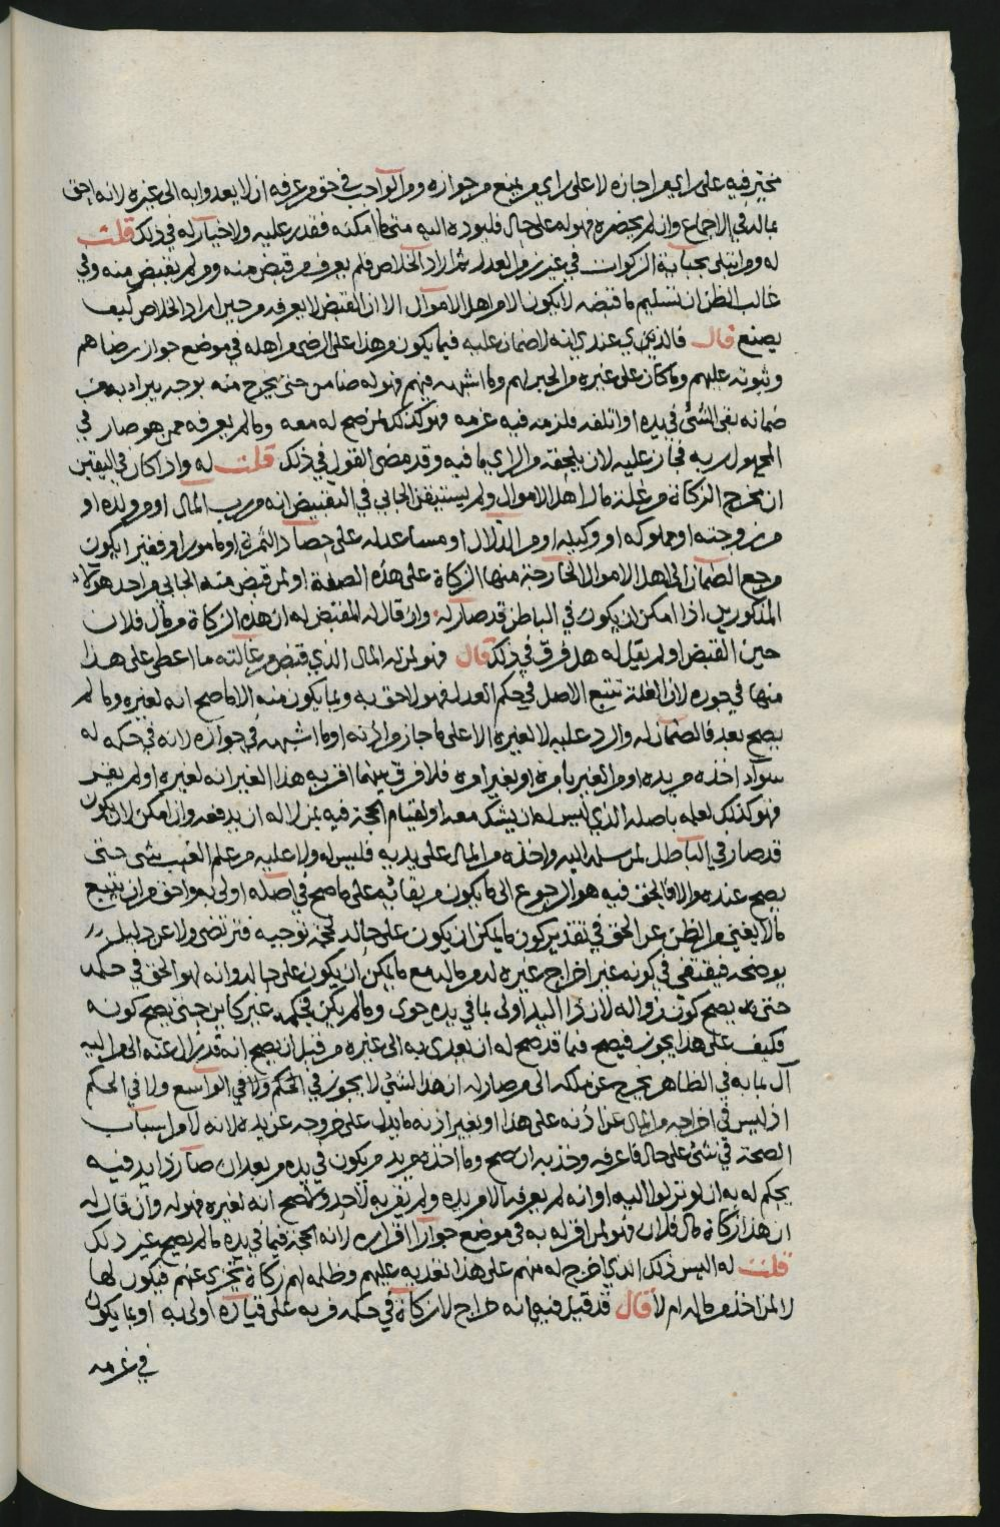 مخير فيه على راي من اجازه لا على راي من يمنع من جوازه ومن الواجب في حق من عرفه ان لا يعدوا به الى غيره لانه احق
بماله في الاجماع وان لم يحضره فهو له على حال فليوده اليه متى ما امكنه فقدر عليه ولا خيار له في ذلك قلت
له ومن ابتلى بجباية الزكوات في غير زمن العدل ثم اراد الخلاص فلم يعرف من قبض منه ومن لم يقبض منه وفي
غالب الظن ان تسليم ما قبضه لا يكون الا من اهل الاموال الا ان القبض لا يعرفه من حين اراد الخلاص كيف
يصنع قال فالذي عندي انه لا ضمان عليه فيما يكون من هذا على الرضى من اهله في موضع جواز رضاهم
وثبوته عليهم وما كان على غيره من الجبر لهم وما اشبهه فيهم فهو له ضامن حتى يخرج منه بوجه يبرا به من
ضمانه بقى الشئ في يده او اتلفه فلزمه فيه غرمه فهو كذلك لمن صح له معه وما لم يعرفه لمن هو صار في
المجهول ربه فجاز عليه لان يلحقه من الراي ما فيه وقد مضى القول في ذلك قلت له واذا كان في اليقين
ان مخرج الزكاة من غلة مال اهل الاموال ولم يستيقن الجابي في التقبيض انه من رب المال او من ولده او
من زوجته او مملوكه او وكيله او من الدلال او مساعد له على حصاد الثمرة او مامور او فقير ايكون
مرجع الضمان الى اهل الاموال الخارجة منها الزكاة على هذه الصفة او لمن قبض منه الجابي من احد هولاء
المذكورين اذا امكن ان يكون في الباطن قد صار له وان قال له المقبض له ان هذه الزكاة من مال فلان
حين القبض او لم يقل له هل فرق في ذلك قال فهو لمن له المال الذي قبض من غالته ما اعطى على هذا
منها في جوره لان الغلة تتبع الاصل في حكم العدل فهو الاحق به وبما يكون منه الا ما صح انه لغيره وما لم
يصح بعد فالضمان له والرد عليه لا لغيره الا على ما جاز من اذنه او ما اشبهه في جوازه لانه في حكمه له
سواء اخذه من يده او من الغير بامره او بغير امره فلا فرق بينهما اقر به هذا الغير انه لغيره او لم يقر
فهو كذلك لعلمه باصله الذي ليس له ان يشك معه او لقيام الحجة فيه بمن لا له ان يدفعه وان امكن لان يكون
قد صار في الباطل لمن سلمه اليه واخذه من المال على يديه فليس له ولا عليه من علم الغيب شى حتى
يصح عنده والا فالحق فيه هو الرجوع الى ما يكون من بقائه على ما صح في اصله اولى به واحق من ان يتبع
ما لا يغني من الظن عن الحق في تقدير كون ما يمكن ان يكون على حاله لحجة توجبه فترتضى ولا عن دليل
يوضحه فيقتفى في كونه عبر اخراج غيره له من ماله مع ما يمكن ان يكون على حاله وانه لهو الحق في حكمه
حتى يصح كون زواله لان ذا اليد اولى بما في يده حوى وما لم يكن في حكمه غير كاين حتى يصح كونه
فكيف على هذا يجوز فيصح فيما قد صح له ان يعدى به الى غيره من قبل ان يصح انه قد زال عنه الى من اليه
آل بما به في الظاهر يخرج عن ملكه الى من صار له ان هذا لشئ لا يجوز في الحكم ولا في الواسع ولا في الحكم
اذ ليس في اخراجه من المال عن اذنه على هذا او بغير اذنه ما يدل على خروجه عن يده لانه لا من اسباب
الصحة في شئ على حال فاعرفه وخذ به ان صح وما اخذه من يد من يكون في يده من بعد ان صار ذا يد فيه
يحكم له به ان لو نزلوا اليه او انه لم يعرفه الا من يده ولم يقر به لاحد ولا صح انه لغيره فهو له وان قال له
ان هذا زكاة مال فلان فهو لمن اقر له به في موضع جواز اقراره لانه الحجة فيما في يده ما لم يصح غير ذلك
قلت له اليس ذلك الذي اخرج له منهم على هذا تعديه عليهم وظلمه لهم زكاة تجزى عنهم فيكون لها
لا لمن اخذ من ماله ام لا قال قد قيل فيه انه خراج لا زكاة في حكمه فربه على قياده اولى به او بما يكون
في غرمه